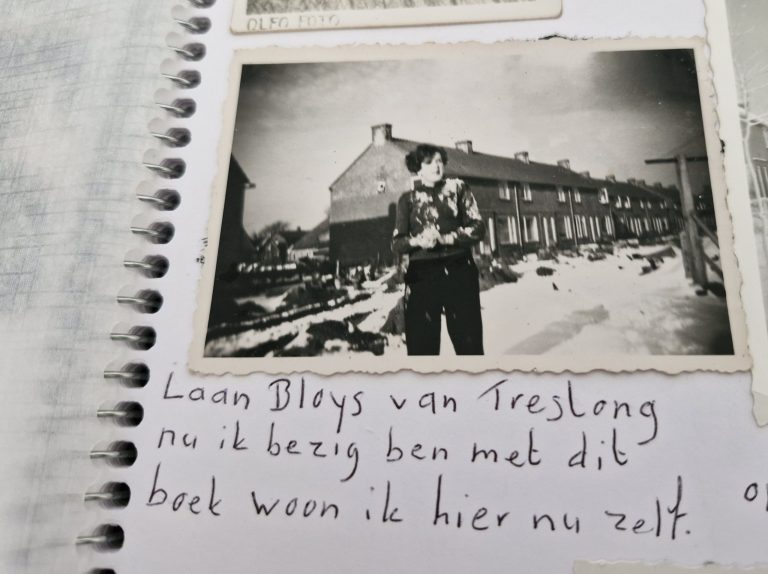 OLFO FOTO
Laan Bloys van Treslong
nu ik bezig ben met dit
boek woon ik hier nu zelf.